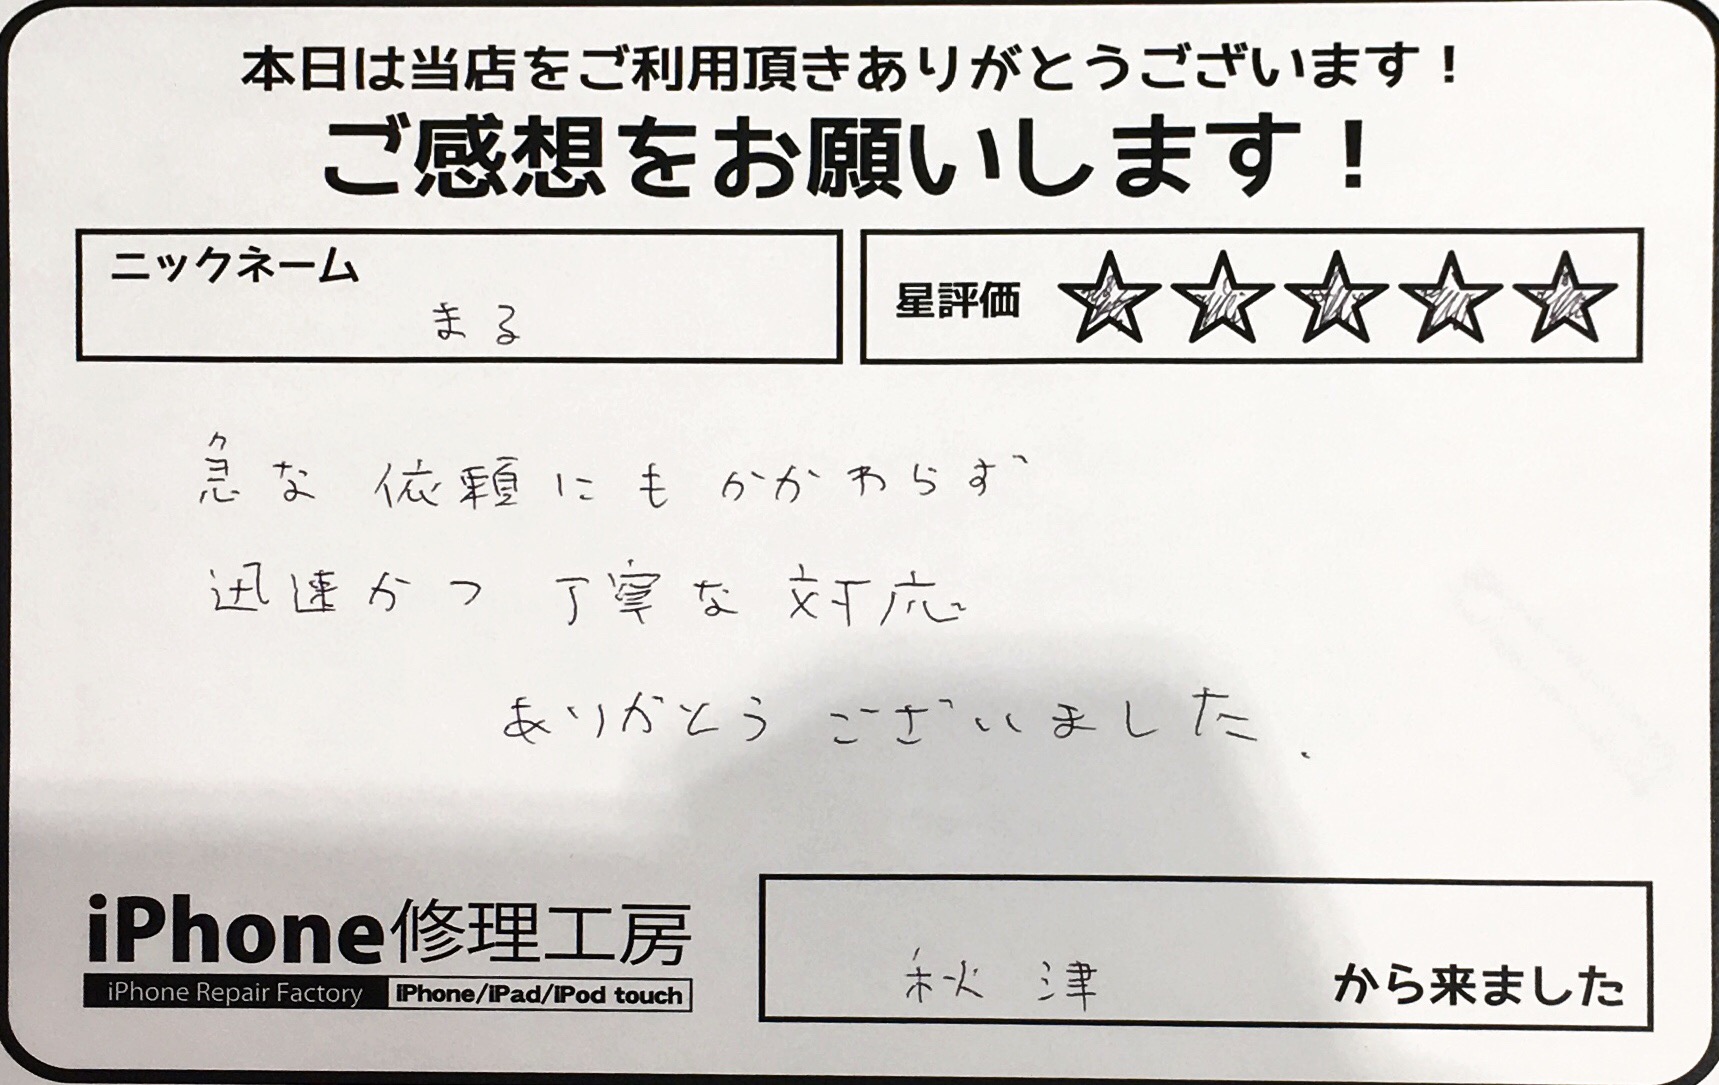 本日は当店をご利用頂きありがとうございます！
ご感想をお願いします！
ニックネーム
まる
星評価
急な依頼にもかかわらず
迅速かつ丁寧な対応
ありがとうございました.
iPhone修理工房
iPhone Repair Factory iPhone/iPad/iPod touch
秋津 から来ました